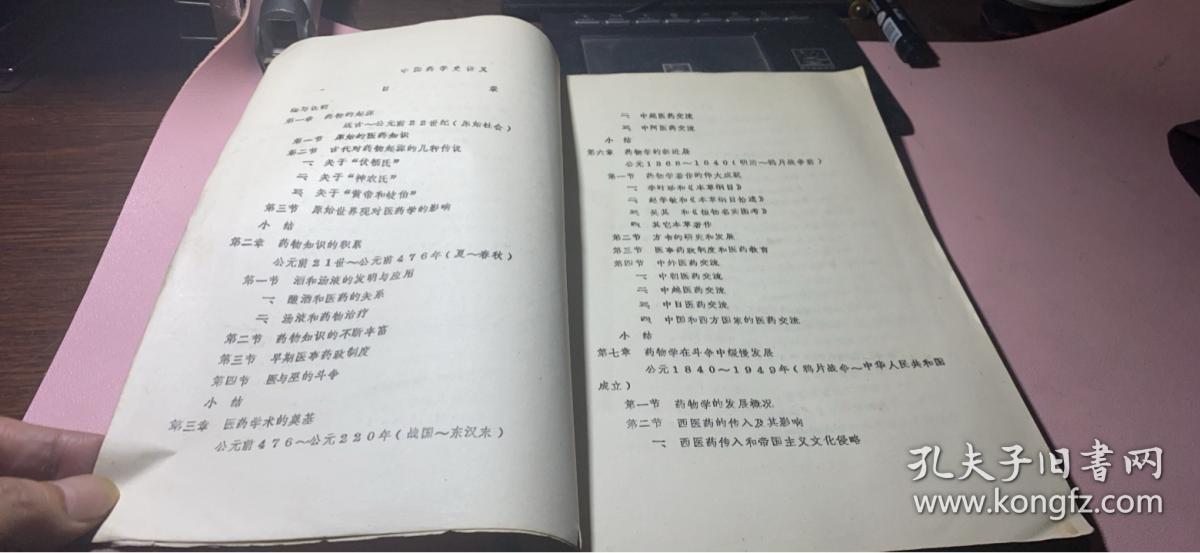 中国药学史讲义
目 录
编写说明
第一章 药物的起源
远古～公元前22世纪(原始社会)
第一节 原始的医药知识
第二节 古代对药物起源的几种传说
一、关于“伏羲氏”
二、关于“神农氏”
三、关于“黄帝和岐伯”
第三节 原始世界观对医药学的影响
小 结
第二章 药物知识的积累
公元前21世～公元前476年(夏～春秋)
第一节 酒和汤液的发明与应用
一、酿酒和医药的关系
二、汤液和药物治疗
第二节 药物知识的不断丰富
第三节 早期医事药政制度
第四节 医与巫的斗争
小 结
第三章 医药学术的奠基
公元前476～公元220年(战国～东汉末)
二、中越医药交流
三、中阿医药交流
小 结
第六章 药物学的新进展
公元1368～1840(明清～鸦片战争前)
第一节 药物学著作的伟大成就
一、李时珍和《本草纲目》
二、赵学敏和《本草纲目拾遗》
三、吴其 和《植物名实图考》
四、其它本草著作
第二节 方书的研究和发展
第三节 医事药政制度和医药教育
第四节 中外医药交流
一、中朝医药交流
二、中越医药交流
三、中日医药交流
四、中国和西方国家的医药交流
小 结
第七章 药物学在斗争中缓慢发展
公元1840～1949年(鸦片战争～中华人民共和国
成立)
第一节 药物学的发展概况
第二节 西医药的传入及其影响
一、西医药传入和帝国主义文化侵略
孔夫子旧书网
www.kongfz.com